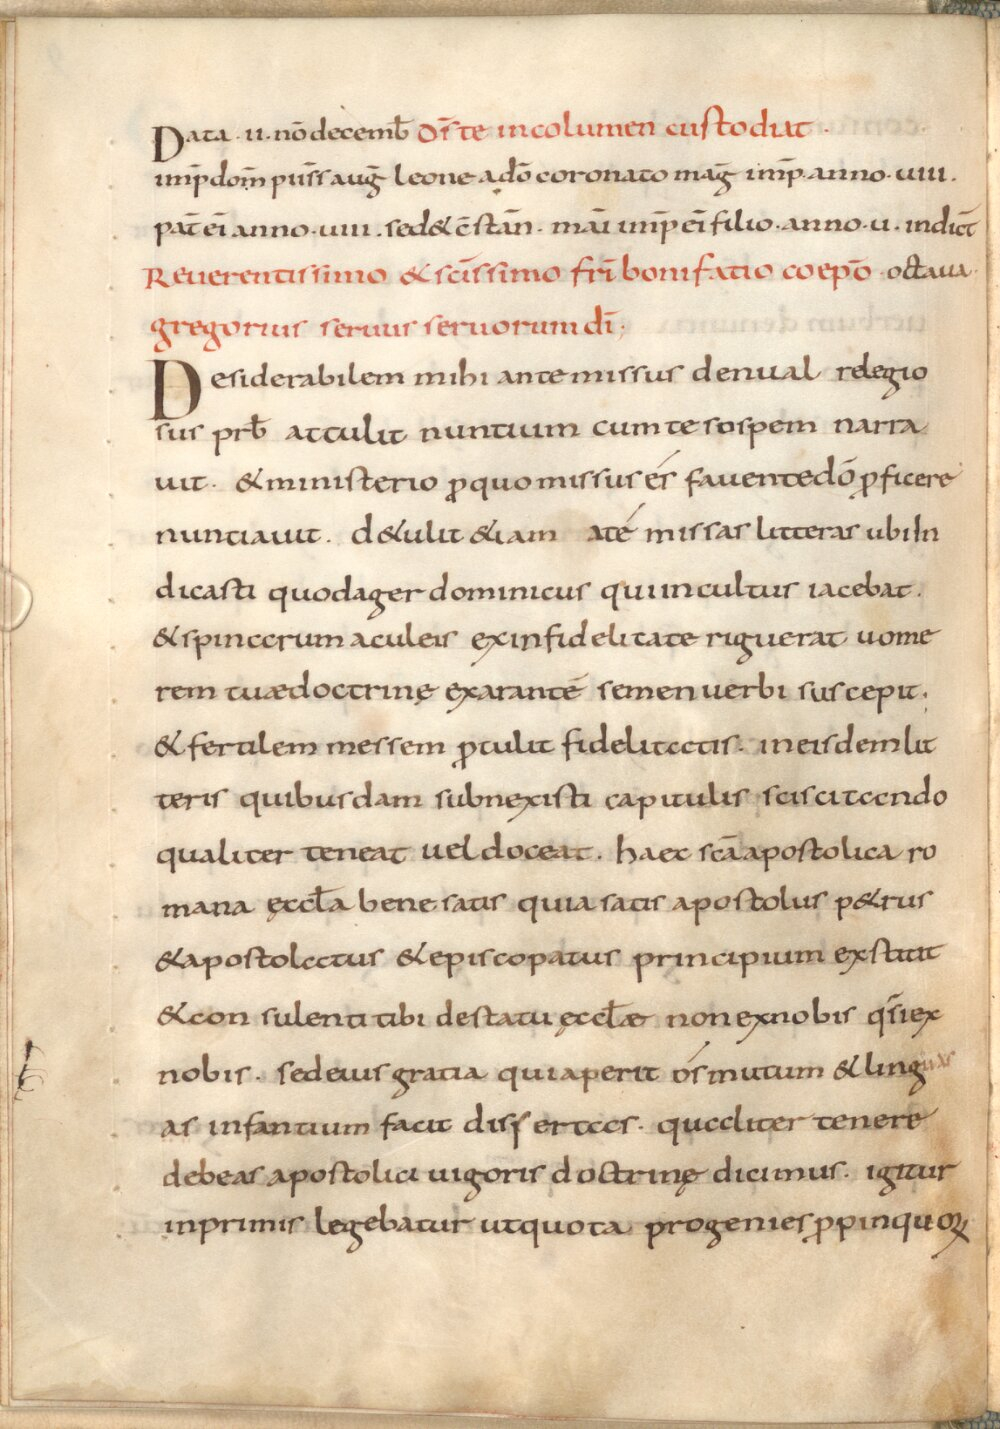 Data · II · nōdecemb̄ Dr̄s te incolumen custodiat ·
imp̄ dom̄ piis̄s aug̅ leone adō coronato mag̅ imp̄ · anno · uiii ·
pat̄ ei̅ anno · uiii · sed& c̄stan̄ · mai̅ imp̄ ei̅ filio · anno · u · indict̄
Reuerentissimo & sc̄issimo fri̅ bonifatio coepō octaua ·
gregorius seruus seruorum di̅ ·
Desiderabilem mihi ante missus denual relegio
sus prb̄ attulit nuntium cum te sospem narra
uit · & ministerio ꝓ quo missus és fauente dō ꝓficere
nuntiauit · d&ulit &iam a té missas litteras ubi In
dicasti quod ager dominicus qui incultus iacebat ·
& spinarum aculeis ex infidelitate riguerat uome
rem tuæ doctrinę exarante semen uerbi suscepit ·
& fertilem messem ꝓtulit fidelitatis · in eisdem lit
teris quibusdam subnexisti capitulis sciscitando
qualiter teneat uel doceat · haec sc̄a apostolica ro
mana ęccl̄a bene satis quia satis apostolus p&rus
& apostolatus & episcopatus principium exstitit
& con sulenti tibi de statu ęccl̄æ non ex nobis qs̄i ex
nobis · sed eius gratia qui aperit ós mutum & linguas
as infantium facit diss ertas · qualiter tenere
debeas apostolici uigoris doctrinę dicimus · igitur
inprimis legebatur ut quota progenies ꝓpinquoꝝ